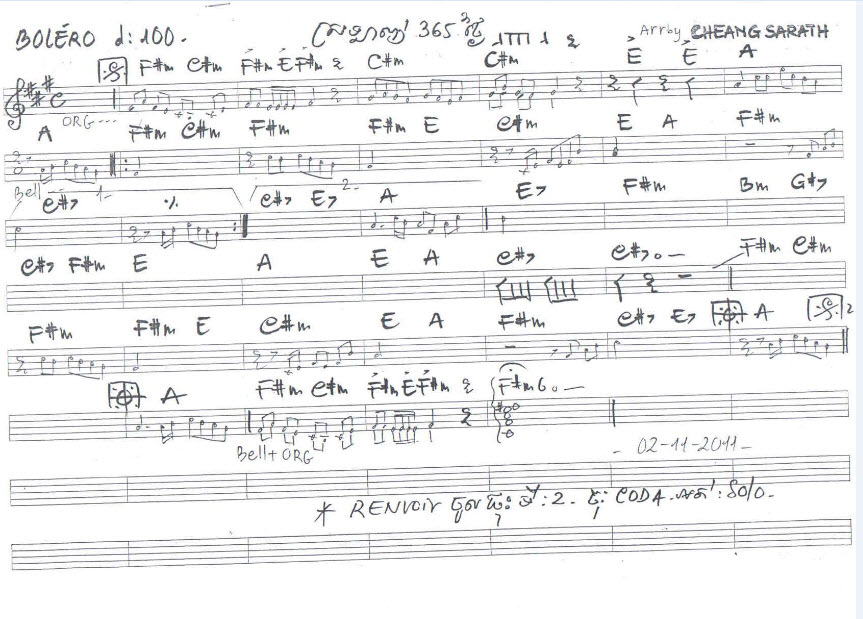 BOLÉRO d: 100. ស្រឡាញ់ 365 ថ្ងៃ Arr by CHEANG SARATH
F#m C#m F#m E F#m C#m C#m E E A
ORG
A F#m C#m F#m F#m E C#m E A F#m
Bell
C#7 1- ٪ C#7 E7 2- A E7 F#m Bm G#7
C#7 F#m E A E A C#7 C#7 F#m C#m
F#m F#m E C#m E A F#m C#7 E7 A 2
A F#m C#m F#m E F#m F#m6
Bell + ORG
- 02-11-2011 -
* RENVOIR ចូល : 2 - CODA : Solo.